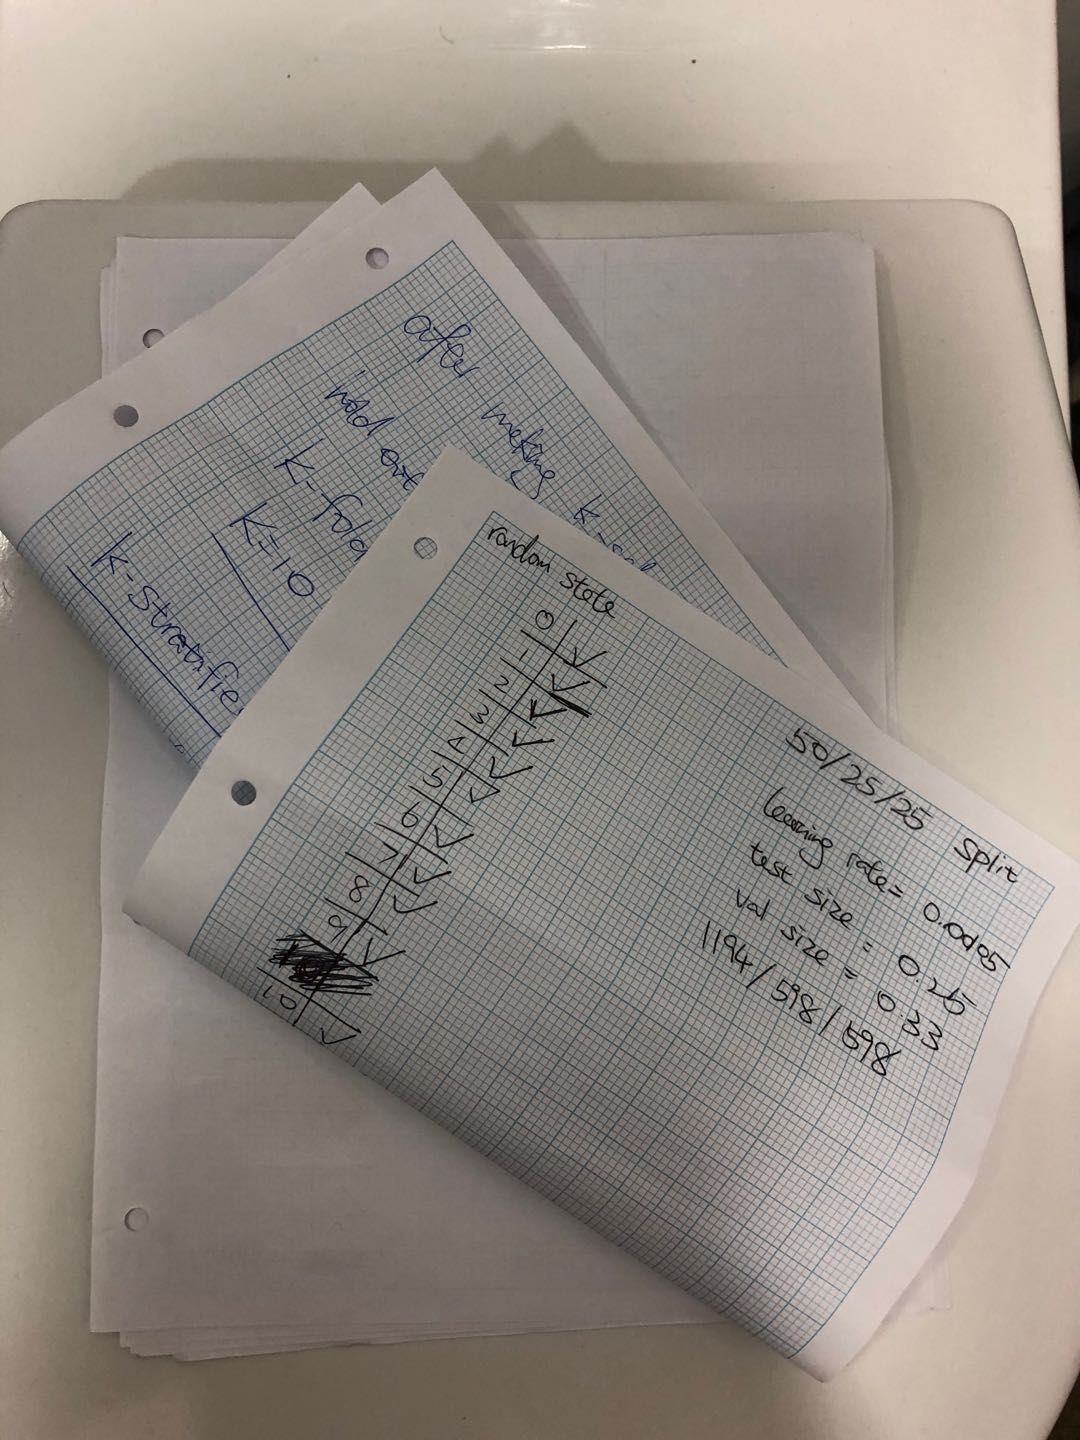 after making
hold out
K-fold
K=10
K-stratifie
random state
0
1
2
3
4
5
6
7
8
9
10
50/25/25 split
learning rate=
test size = 0.25
val size = 0.33
1194/598/598